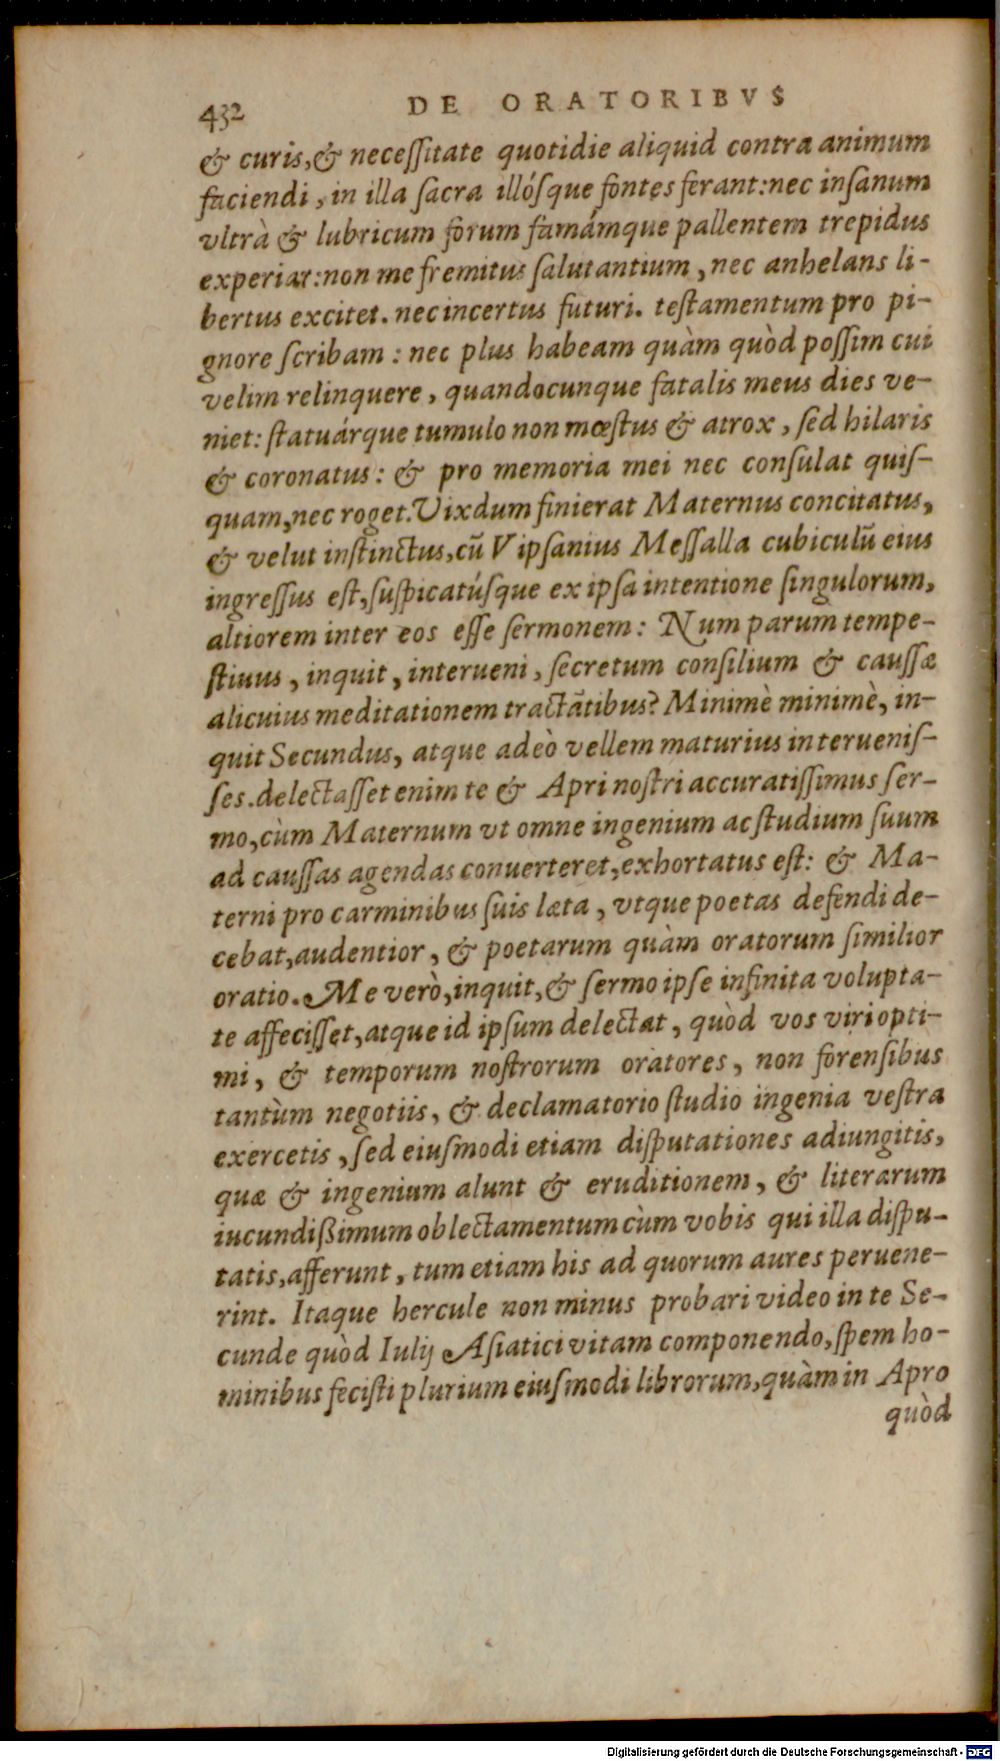 432 DE ORATORIBVS
& curis, & necessitate quotidie aliquid contra animum
faciendi, in illa sacra illósque fontes ferant: nec insanum
vltrà & lubricum forum famámque pallentem trepidus
experiar: non me fremitus salutantium, nec anhelans li-
bertus excitet. nec incertus futuri. testamentum pro pi-
gnore scribam: nec plus habeam quàm quòd possim cui
velim relinquere, quandocunque fatalis meus dies ve-
niet: statuárque tumulo non mœstus & atrox, sed hilaris
& coronatus: & pro memoria mei nec consulat quis-
quam, nec roget. Vixdum finierat Maternus concitatus,
& velut instinctus, cũ Vipsanius Messalla cubiculũ eius
ingressus est, suspicatúsque ex ipsa intentione singulorum,
altiorem inter eos esse sermonem: Num parum tempe-
stiuus, inquit, interueni, secretum consilium & caussæ
alicuius meditationem tractãtibus? Minimè minimè, in-
quit Secundus, atque adeò vellem maturius interuenis-
ses. delectasset enim te & Apri nostri accuratissimus ser-
mo, cùm Maternum vt omne ingenium ac studium suum
ad caussas agendas conuerteret, exhortatus est: & Ma-
terni pro carminibus suis læta, vtque poetas defendi de-
cebat, audentior, & poetarum quàm oratorum similior
oratio. Me verò, inquit, & sermo ipse infinita volupta-
te affecisset, atque id ipsum delectat, quòd vos viri opti-
mi, & temporum nostrorum oratores, non forensibus
tantùm negotiis, & declamatorio studio ingenia vestra
exercetis, sed eiusmodi etiam disputationes adiungitis,
quæ & ingenium alunt & eruditionem, & literarum
iucundißimum oblectamentum cùm vobis qui illa dispu-
tatis, afferunt, tum etiam his ad quorum aures peruene-
rint. Itaque hercule non minus probari video in te Se-
cunde quòd Iulij Asiatici vitam componendo, spem ho-
minibus fecisti plurium eiusmodi librorum, quàm in Apro
quòd
Digitalisierung gefördert durch die Deutsche Forschungsgemeinschaft - DFG